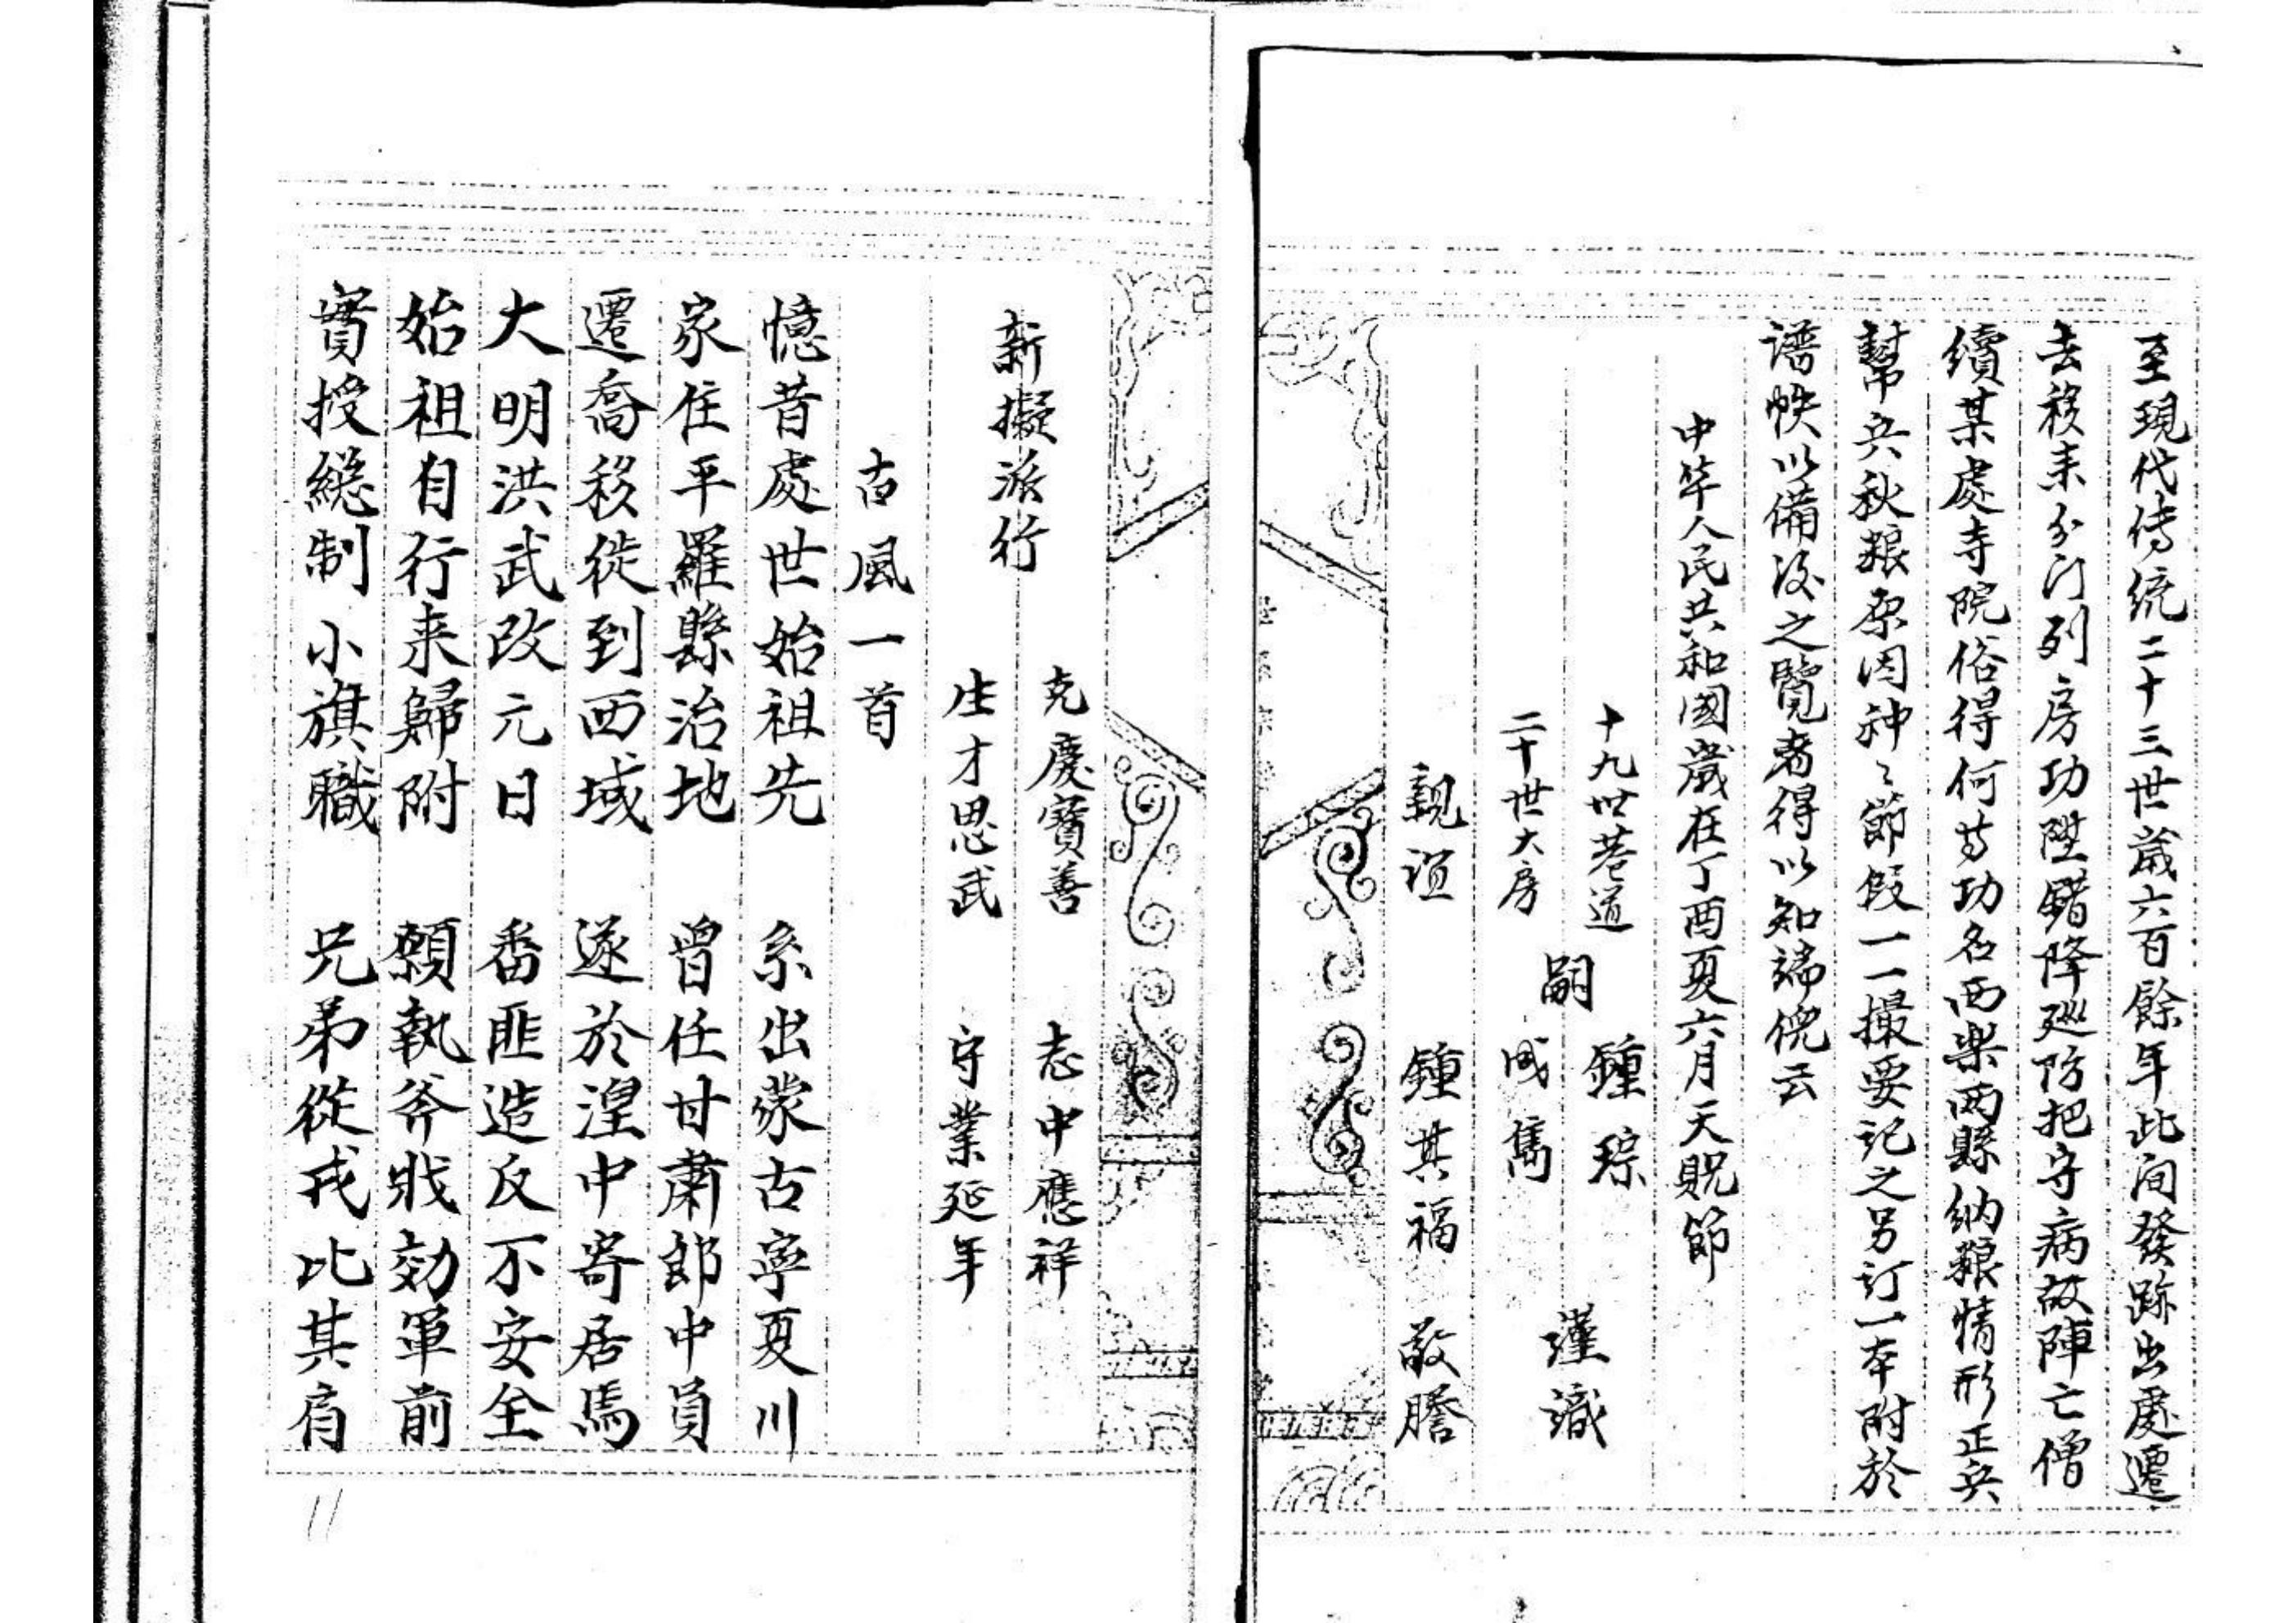 至現代傳統二十三世歲六百餘年此间發跡出處遷
去移来分门列房功陞錯降廵防把守病故陣亡僧
續某處寺院俗得何等功名西樂两縣納粮情形正兵
幫兵秋粮原因种〻節段一一撮要记之另订一本附於
谱帙以備後之覽者得以知端倪云
中华人民共和國歲在丁酉夏六月天貺節
十九世巷道 鍾琮
嗣 谨識
二十世大房 成雋
親谊 鍾其福 敬謄
新擬派行
克慶寳善 志中應祥
生才思武 守業延年
古風一首
憶昔處世始祖先 系出蒙古寧夏川
家住平羅縣治地 曾任甘肅郎中員
遷喬移徙到西域 遂於湟中寄居焉
大明洪武改元日 番匪造反不安全
始祖自行来歸附 願執斧戕効軍前
實授總制小旗職 兄弟從戎比其肩
11